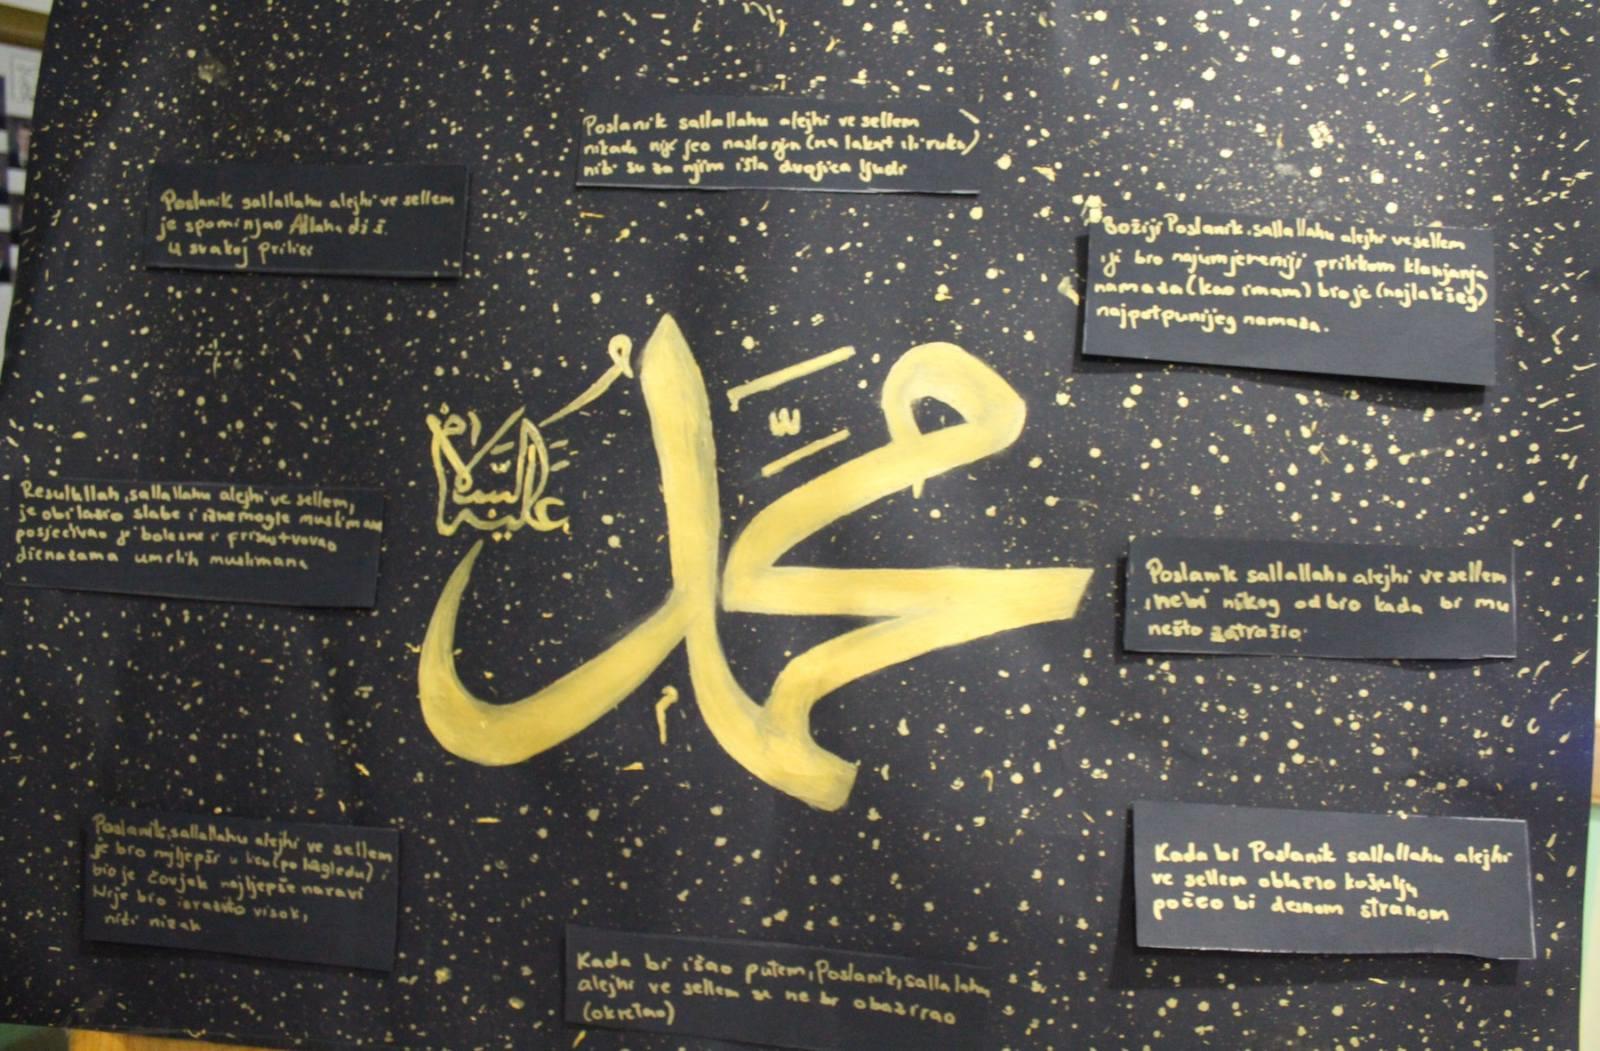 Poslanik sallallahu alejhi ve sellem
nikada nije jeo naslonjen (na lakat ili ruku)
niti su za njim išla dvojica ljudi
Poslanik sallallahu alejhi ve sellem
je spominjao Allaha dž.š.
u svakoj prilici
Božiji Poslanik, sallallahu alejhi ve sellem
je bio najumjereniji prilikom klanjanja
namaza (kao imam) bio je (najlakšeg)
najpotpunijeg namaza.
محمد
عليه السلام
Resulullah, sallallahu alejhi ve sellem,
je obilazio slabe i iznemogle muslimane
posjećivao je bolesne i prisustvovao
dženazama umrlih muslimana
Poslanik sallallahu alejhi ve sellem
nebi nikog odbio kada bi mu
nešto zatražio.
Poslanik, sallallahu alejhi ve sellem
je bio najljepši u licu (po izgledu) i
bio je čovjek najljepše naravi
Nije bio izrazito visok,
niti nizak
Kada bi Poslanik sallallahu alejhi
ve sellem oblačio košulju
počeo bi desnom stranom
Kada bi išao putem, Poslanik, sallalahu
alejhi ve sellem se ne bi obazirao
(okretao)